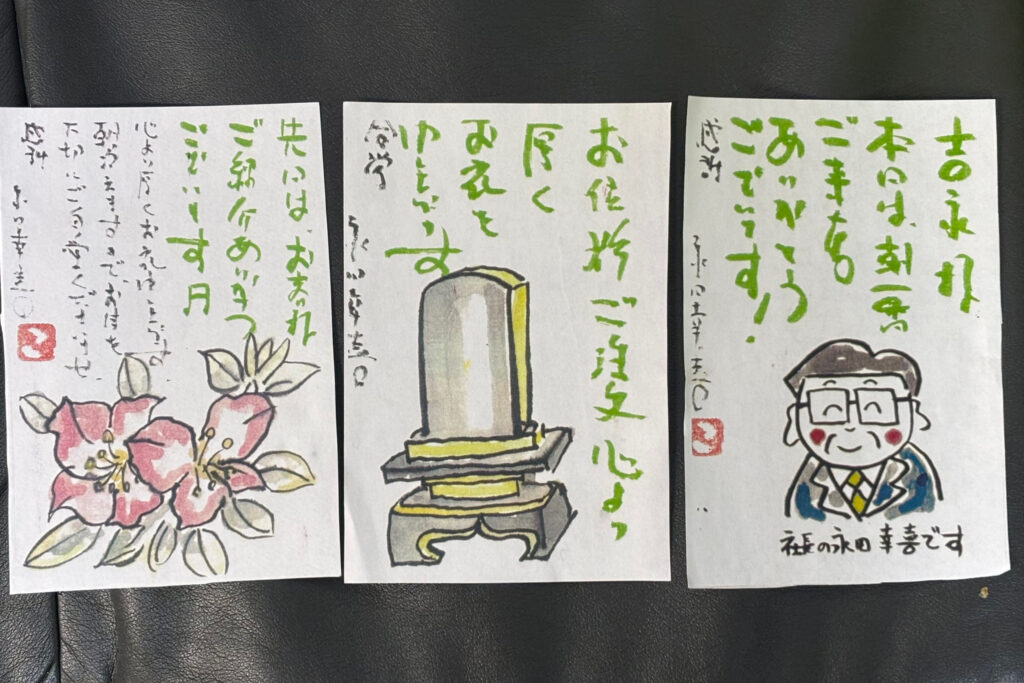 吉永様
本日は、
ご来店
ありがとう
ございます!
感謝
永田幸喜
社長の永田幸喜です
お位牌ご注文心より
厚く
お礼を
申し上げます
合掌
永田幸喜
先日は、お客様
ご紹介ありがとう
ございます
心より厚くお礼申し上げます。
朝夕冷えますので、お体を
大切にご自愛くださいませ
感謝
永田幸喜